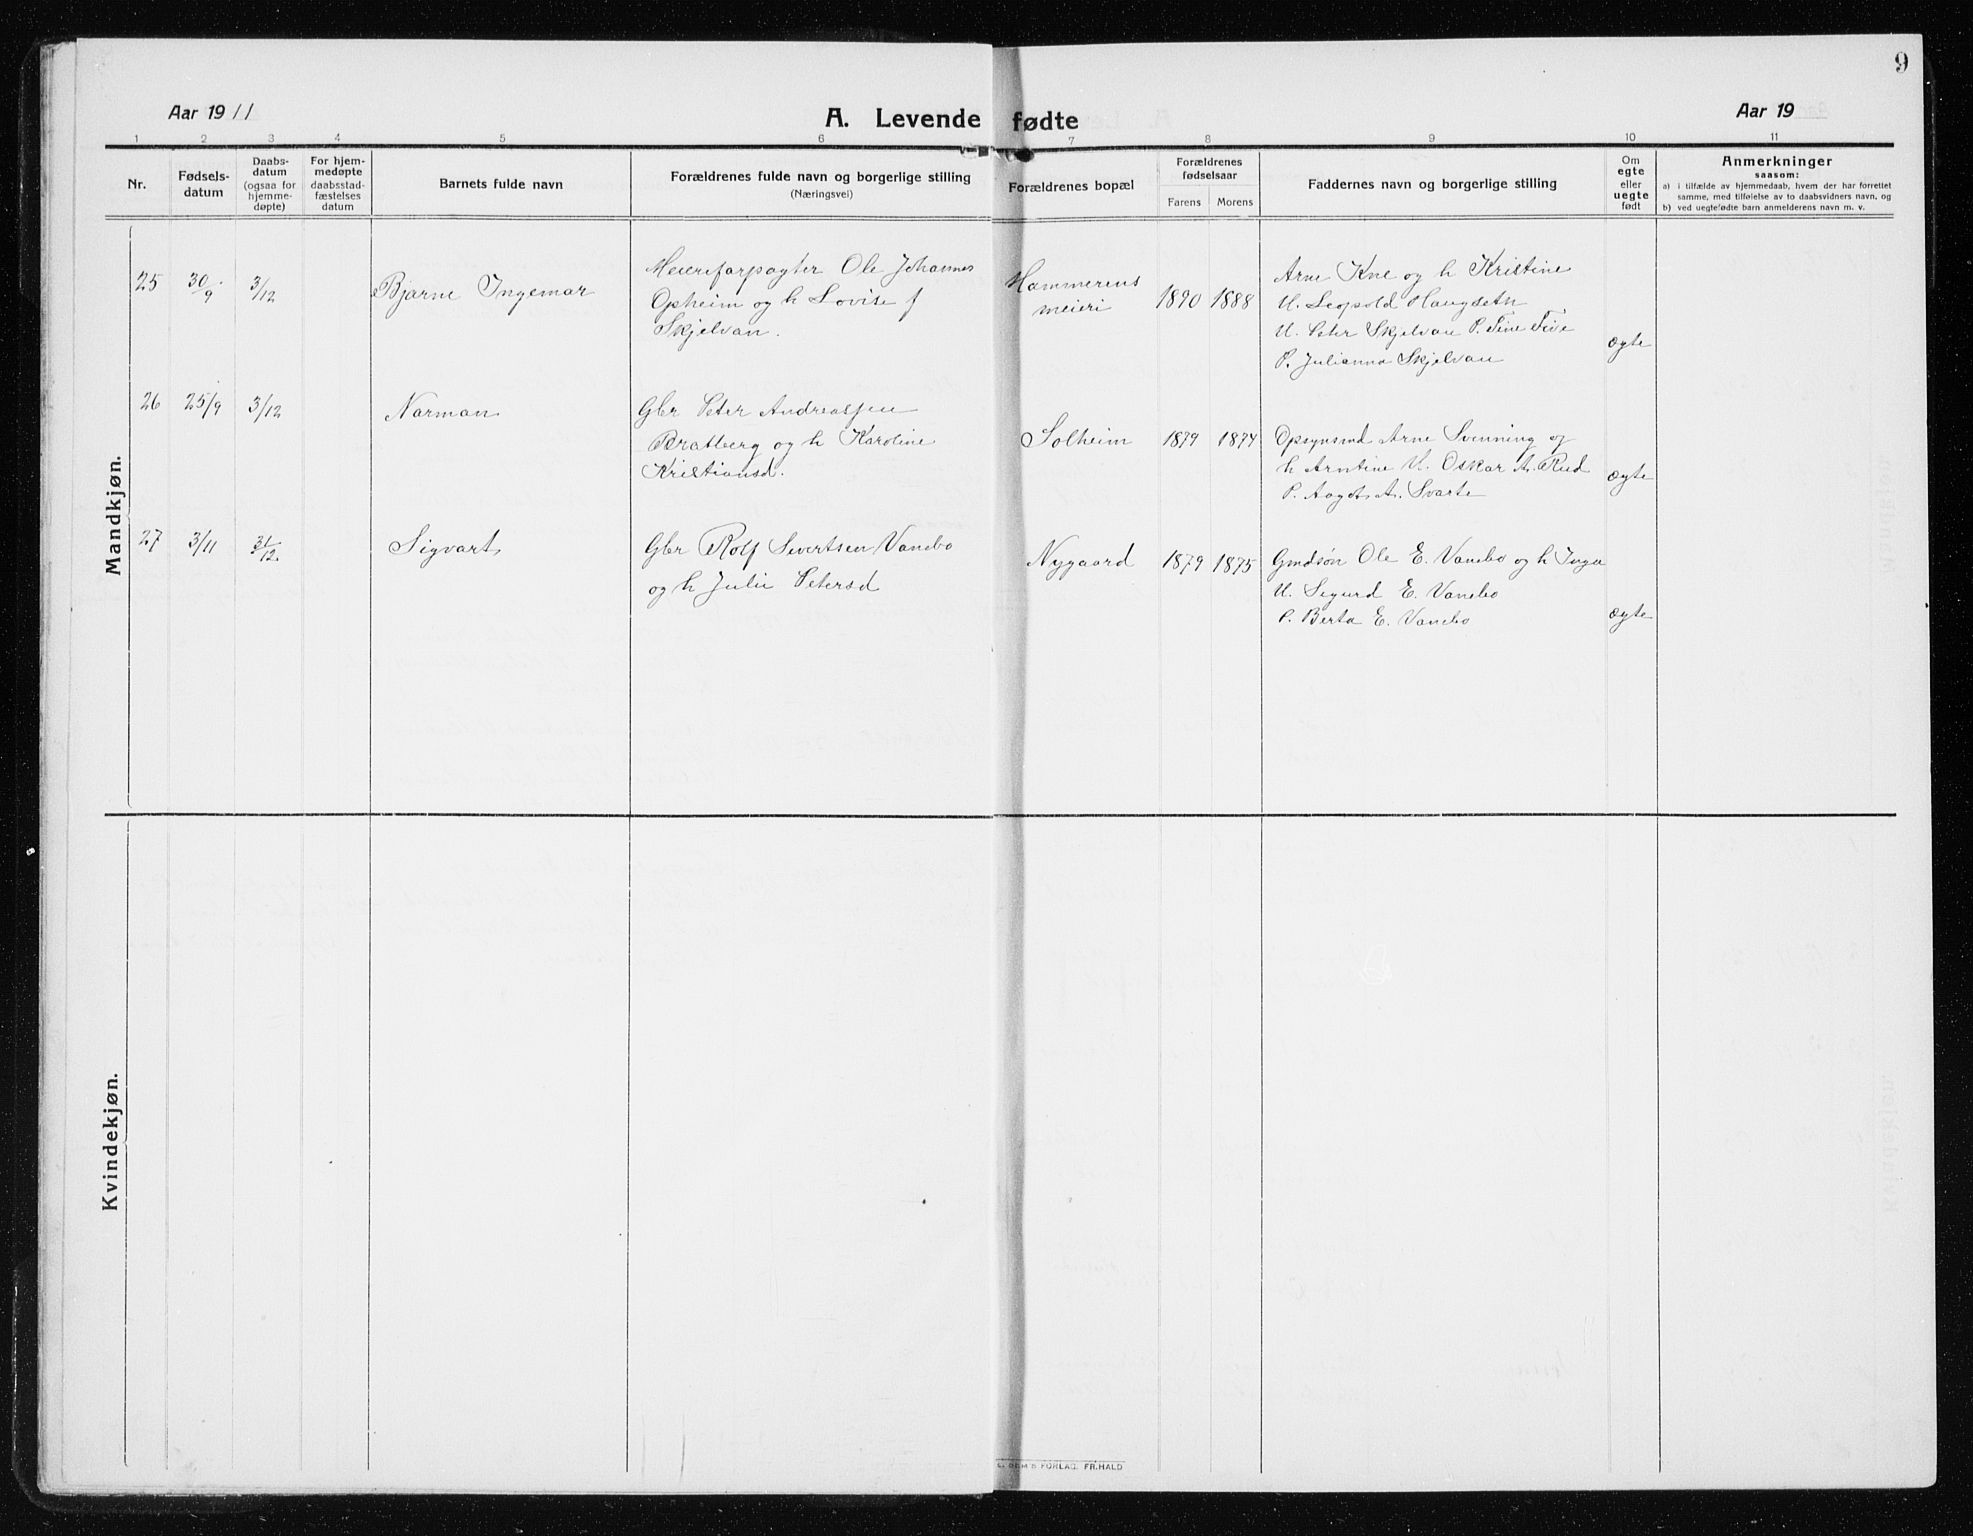 9
Aar 1911
A. Levende fødte
Aar 19
1 2 3 4 5 6 7 8 9 10 11
Nr.
Fødsels-
datum
Daabs-
datum
(ogsaa for
hjemme-
døpte)
For hjem-
medøpte
daabsstad-
fæstelses
datum
Barnets fulde navn
Forældrenes fulde navn og borgerlige stilling
(Næringsvei)
Forældrenes bopæl
Forældrenes
fødselsaar
Farens Morens
Faddernes navn og borgerlige stilling
Om
egte
eller
uegte
født
Anmerkninger
saasom:
a) i tilfælde av hjemmedaab, hvem der har forrettet
samme, med tilføielse av to daabsvidners navn, og
b) ved uegtefødte barn anmelderens navn m. v.
Mandkjøn.
25 30/9 3/12 Bjarne Ingemar
Meieriforpagter Ole Johannes
Opheim og h Lovise f
Skjelvan.
Hammerens
meieri
1890 1888
Arne Kne og h Kristine
U. Leopold Haugseth
U. Peter Skjelvan P. Tine Five
P. Julianna Skjelvan
ægte
26 25/9 3/12 Narman
Gbr Peter Andreassen
Bratberg og h Karoline
Kristiansd.
Solheim
1879 1874
Opsynsmd Arne Svenning og
h Arntine U. Oskar A. Rud
P. Aagot A. Svarte
ægte
27 3/11 31/12. Sigvart
Gbr Rolf Sivertsen Vanebo
og h Julie Petersd
Nygaard
1879 1875
Gmdsøn Ole E. Vanebo og h Inga
U. Sigurd E. Vanebo
P. Berta E. Vanebo
ægte
Kvindekjøn.
FORLAG. FR. HALD